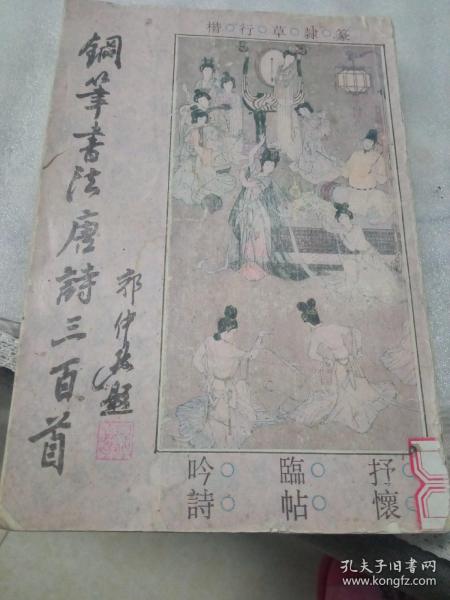 楷○行○草○隸○篆
鋼筆書法唐詩三百首
郭仲選題
抒○懷○
臨○帖○
吟○詩○
孔夫子旧书网
www.kongfz.com